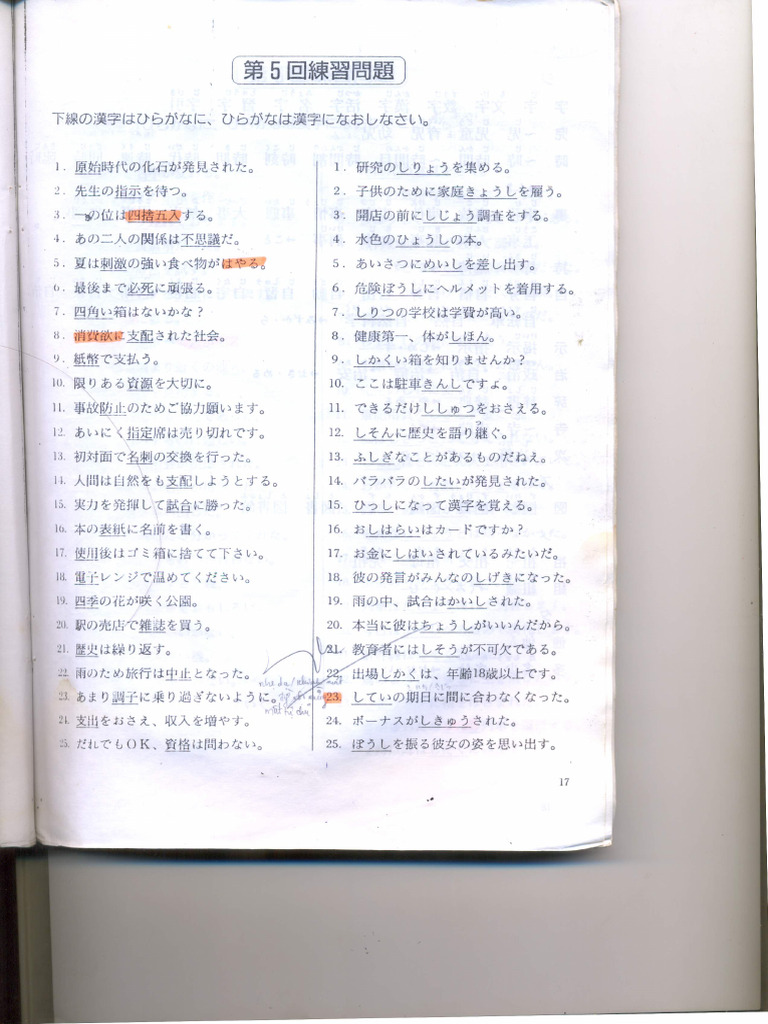 第5回練習問題
下線の漢字はひらがなに、ひらがなは漢字になおしなさい。
1. 原始時代の化石が発見された。
2. 先生の指示を待つ。
3. 一の位は四捨五入する。
4. あの二人の関係は不思議だ。
5. 夏は刺激の強い食べ物がはやる。
6. 最後まで必死に頑張る。
7. 四角い箱はないかな?
8. 消費欲に支配された社会。
9. 紙幣で支払う。
10. 限りある資源を大切に。
11. 事故防止のためご協力願います。
12. あいにく指定席は売り切れです。
13. 初対面で名刺の交換を行った。
14. 人間は自然をも支配しようとする。
15. 実力を発揮して試合に勝った。
16. 本の表紙に名前を書く。
17. 使用後はゴミ箱に捨てて下さい。
18. 電子レンジで温めてください。
19. 四季の花が咲く公園。
20. 駅の売店で雑誌を買う。
21. 歴史は繰り返す。
22. 雨のため旅行は中止となった。
23. あまり調子に乗り過ぎないように。
24. 支出をおさえ、収入を増やす。
25. だれでもOK、資格は問わない。
1. 研究のしりょうを集める。
2. 子供のために家庭きょうしを雇う。
3. 開店の前にしじょう調査をする。
4. 水色のひょうしの本。
5. あいさつにめいしを差し出す。
6. 危険ぼうしにヘルメットを着用する。
7. しりつの学校は学費が高い。
8. 健康第一、体がしほん。
9. しかくい箱を知りませんか?
10. ここは駐車きんしですよ。
11. できるだけししゅつをおさえる。
12. しそんに歴史を語り継ぐ。
13. ふしぎなことがあるものだねえ。
14. バラバラのしたいが発見された。
15. ひっしになって漢字を覚える。
16. おしはらいはカードですか?
17. お金にしはいされているみたいだ。
18. 彼の発言がみんなのしげきになった。
19. 雨の中、試合はかいしされた。
20. 本当に彼はちょうしがいいんだから。
21. 教育者にはしそうが不可欠である。
22. 出場しかくは、年齢18歳以上です。
23. していの期日に間に合わなくなった。
24. ボーナスがしきゅうされた。
25. ぼうしを振る彼女の姿を思い出す。
17